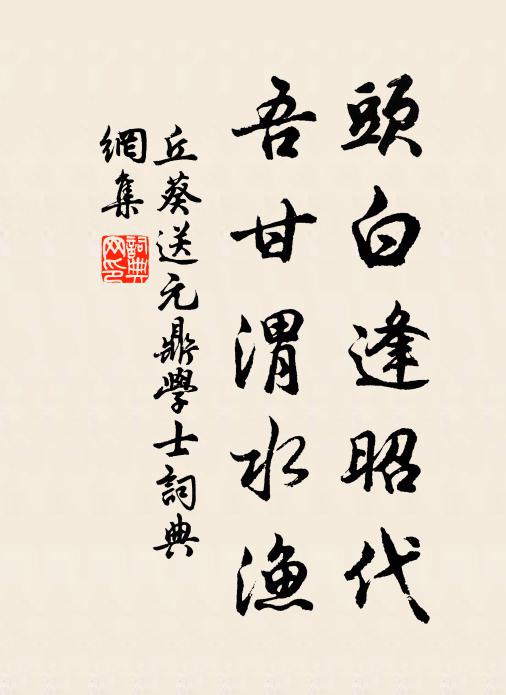 頭白逢昭代
吾甘渭水漁
丘葵送元鼎學士詞典
網集
詞典
网印